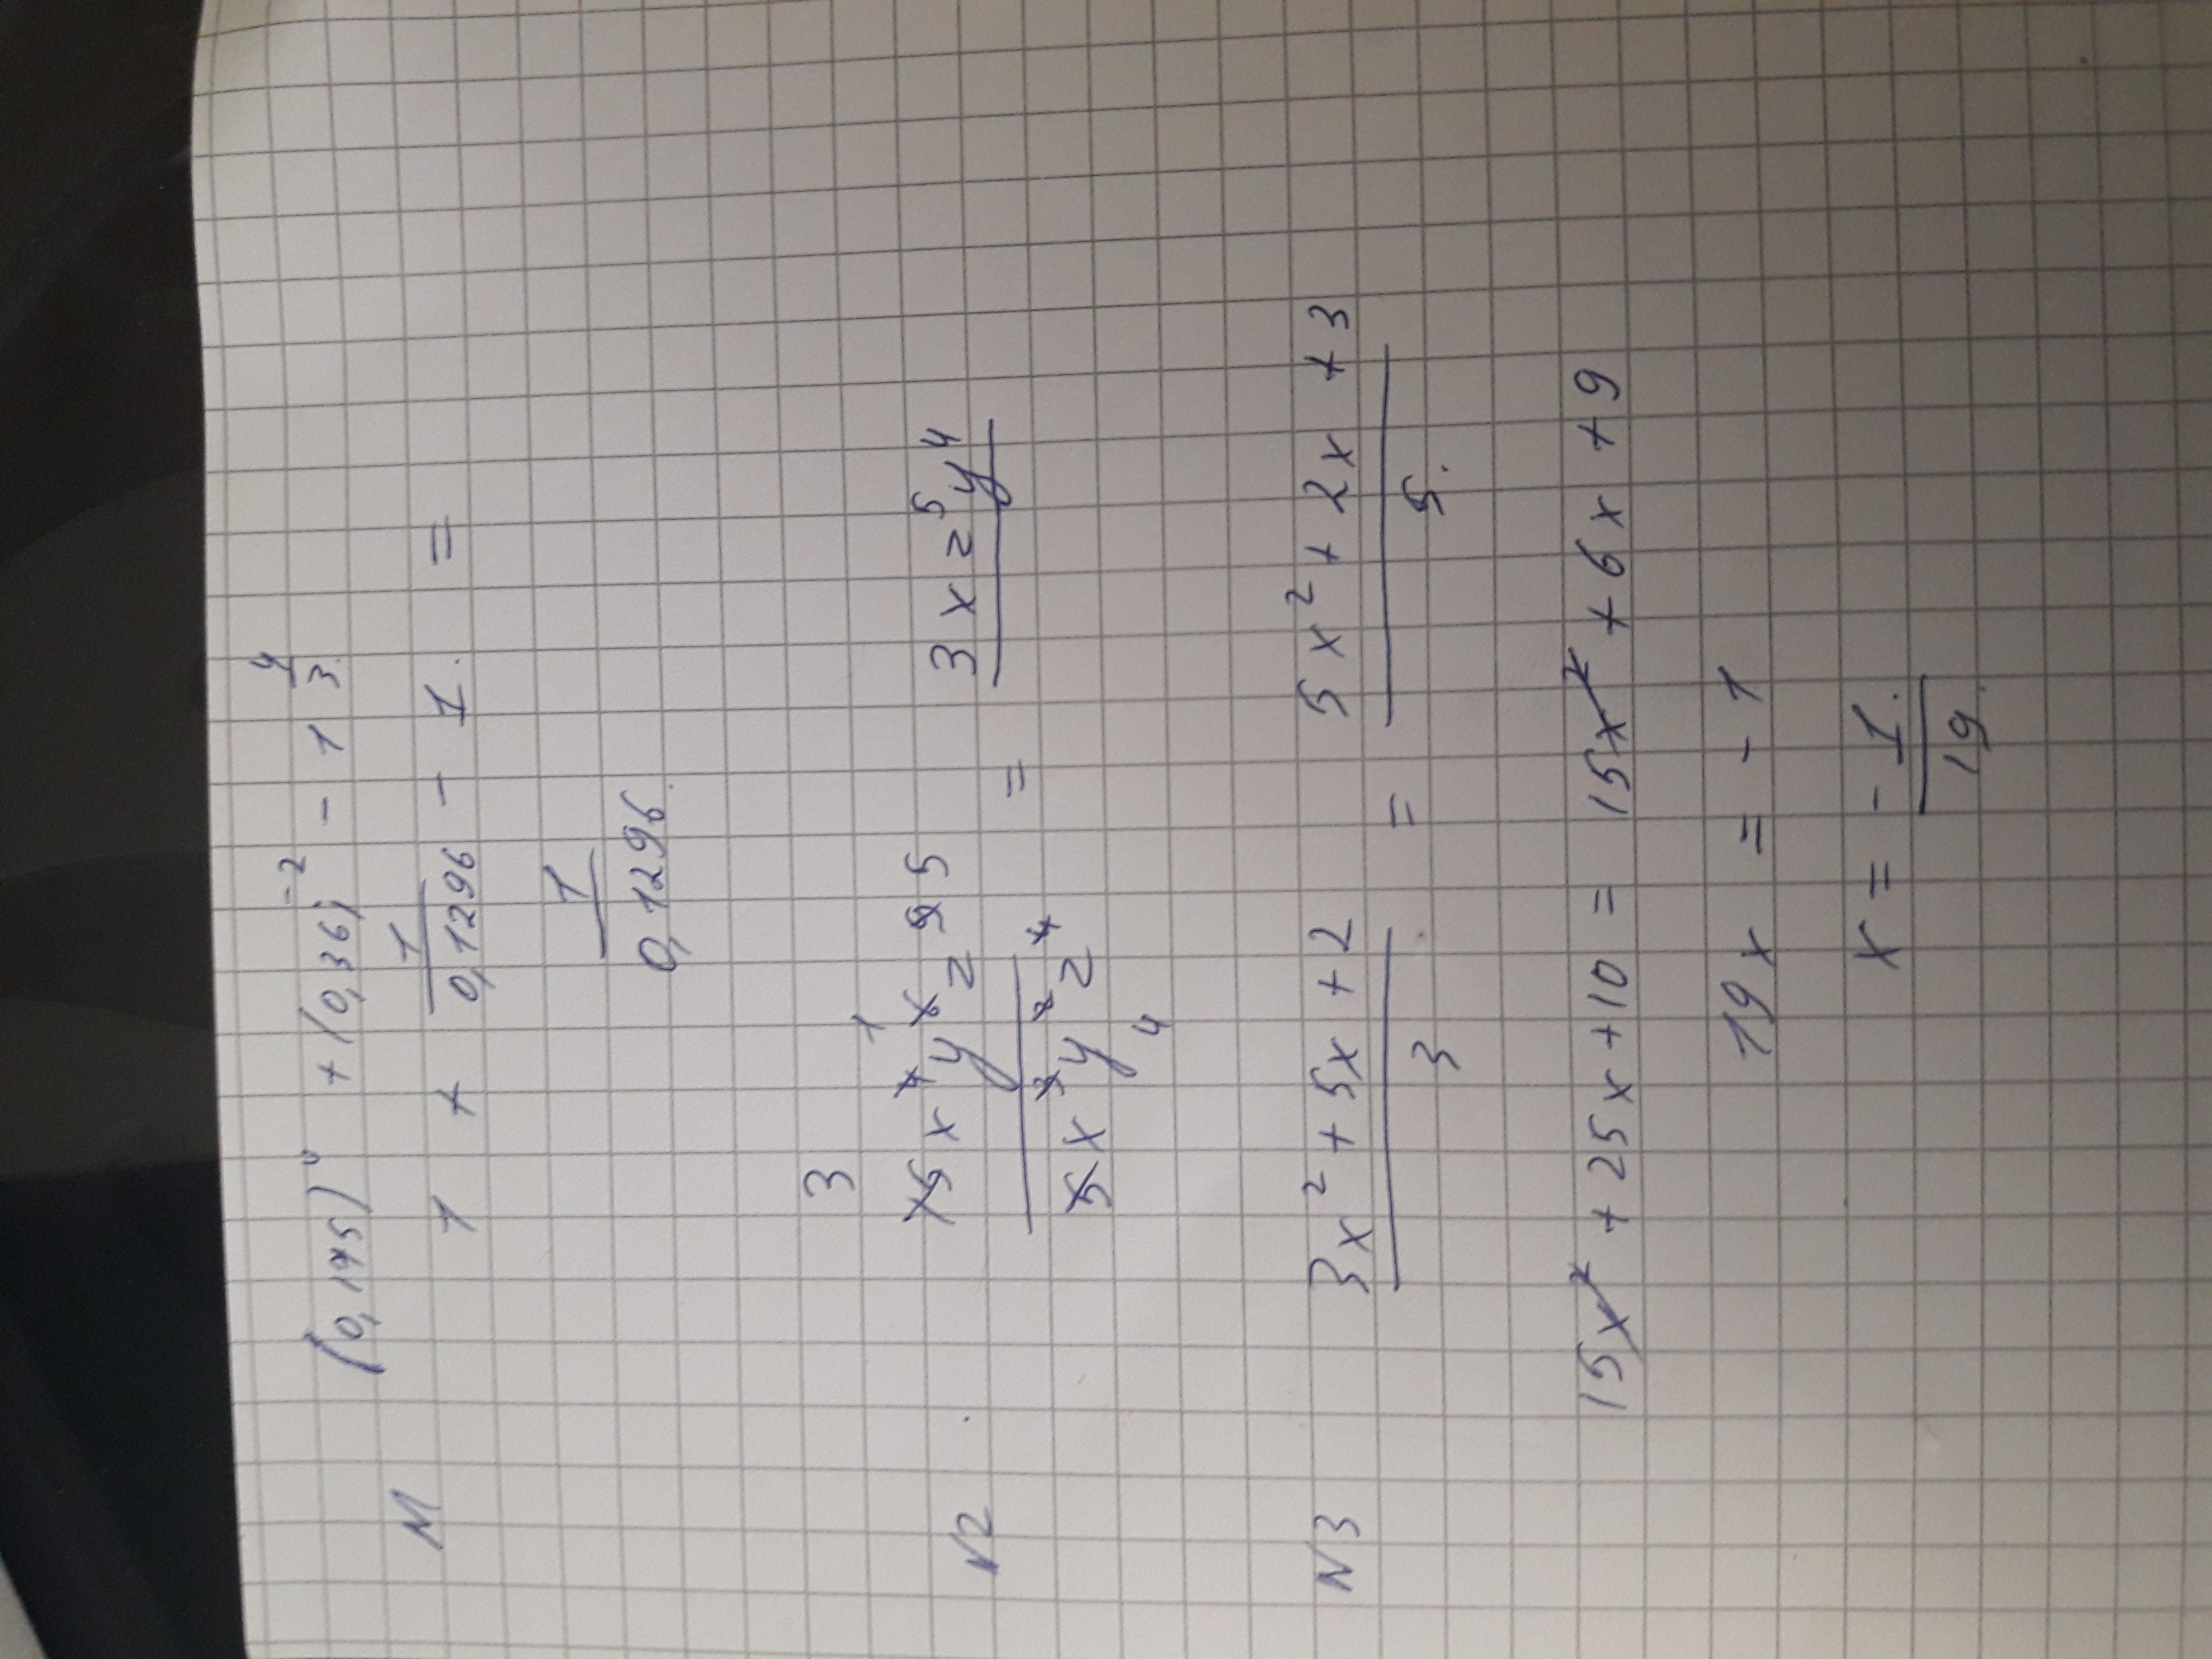 N1 (0,145)⁰ + (0,36)⁻² - 1^(4/3)
1 + 1/0,1296 - 1 =
1/0,1296
N2 3 1
15x⁴y⁸z⁹ 5 / 5x³y⁴z⁴ 4 = 3xz⁵y⁴
N3 (3x² + 5x + 2)/3 = (5x² + 2x + 3)/5
15x² + 25x + 10 = 15x² + 6x + 9
19x = - 1
x = - 1/19